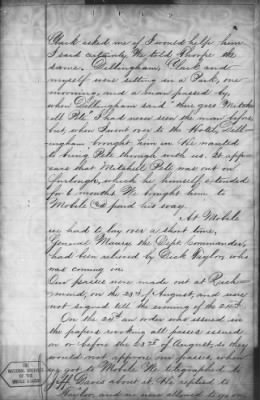 Clark asked me if I would help him
I said certainly. We told Roofe the
same. Dillingham, Clark and
myself were sitting in a Park, one
morning, and a man passed by,
when Dillingham said "there goes Mitch-
ell Pete. I had never seen the man before
but, when I went over to the Hotel, Dill-
ingham brought him in. He wanted
to bring Pete through with us. It app-
ears that Mitchell Pete was out on
furlough, which he himself extended
for 6 months. We brought him to
Mobile & paid his way.
At Mobile
we had to lay over a short time,
General Maury the Dept. Commander,
had been relieved by Dick Taylor, who
was coming on.
Our passes were made out at Rich-
mond, on the 23rd of August, and were
not signed till the evening of the 24th.
On the 25th an order was issued in
the papers revoking all passes issued
on or before the 23rd of August, so they
would not approve our passes, when
we got to Mobile. We telegraphed to
Jeff Davis about it. He replied to
Taylor, and we was allowed to go on